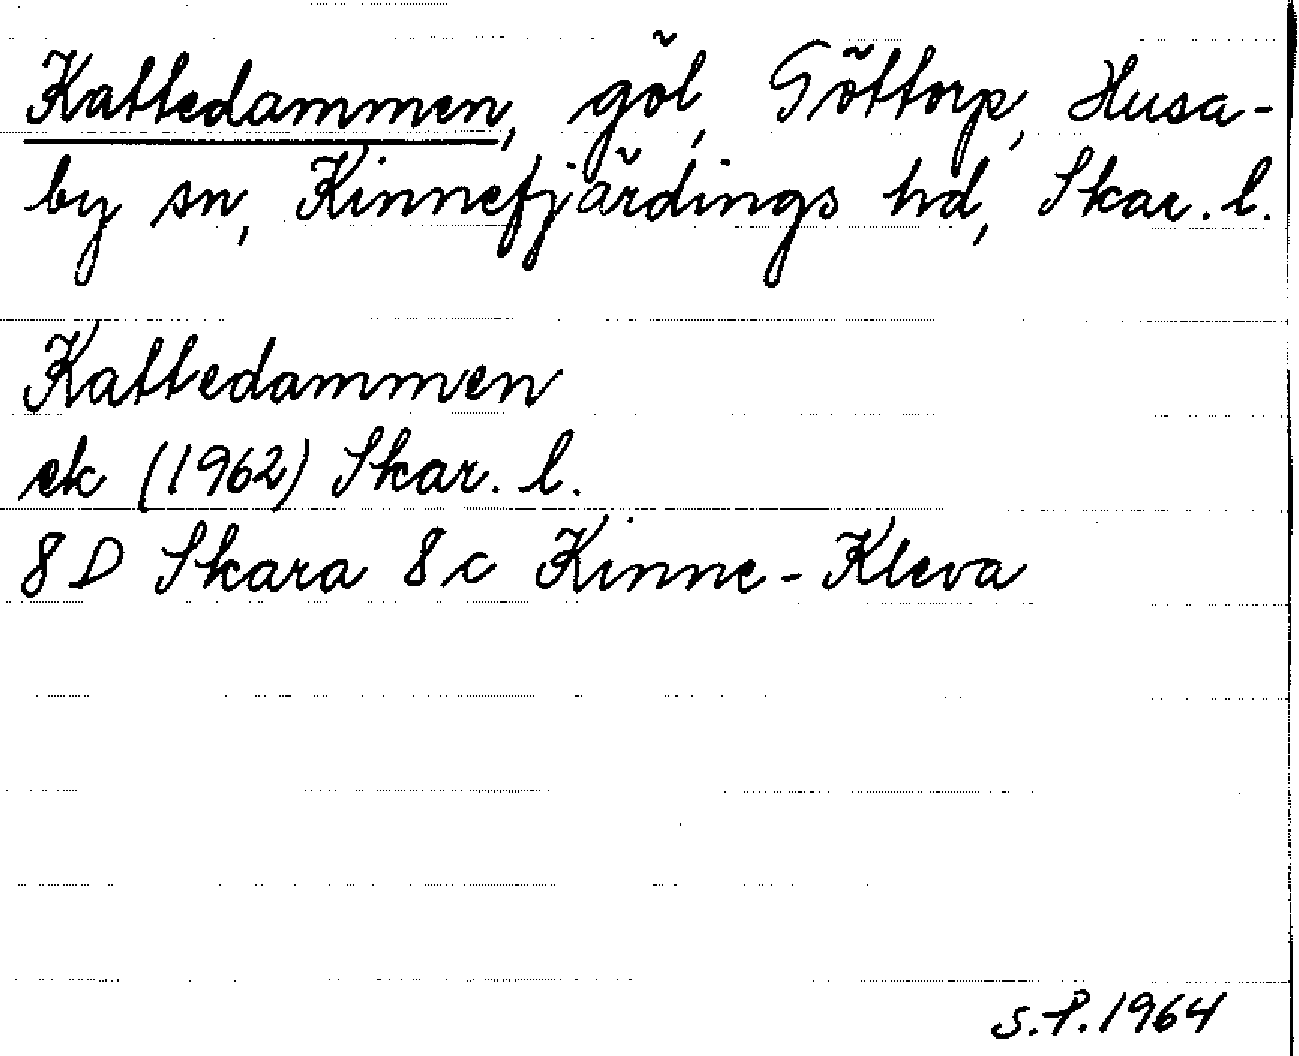 Kattedammen, göl, Göttorp, Husa-
by sn, Kinnefjärdings hd, Skar. l.
Kattedammen
ek (1962) Skar. l.
8 D Skara 8 c Kinne-Kleva
S.P. 1964